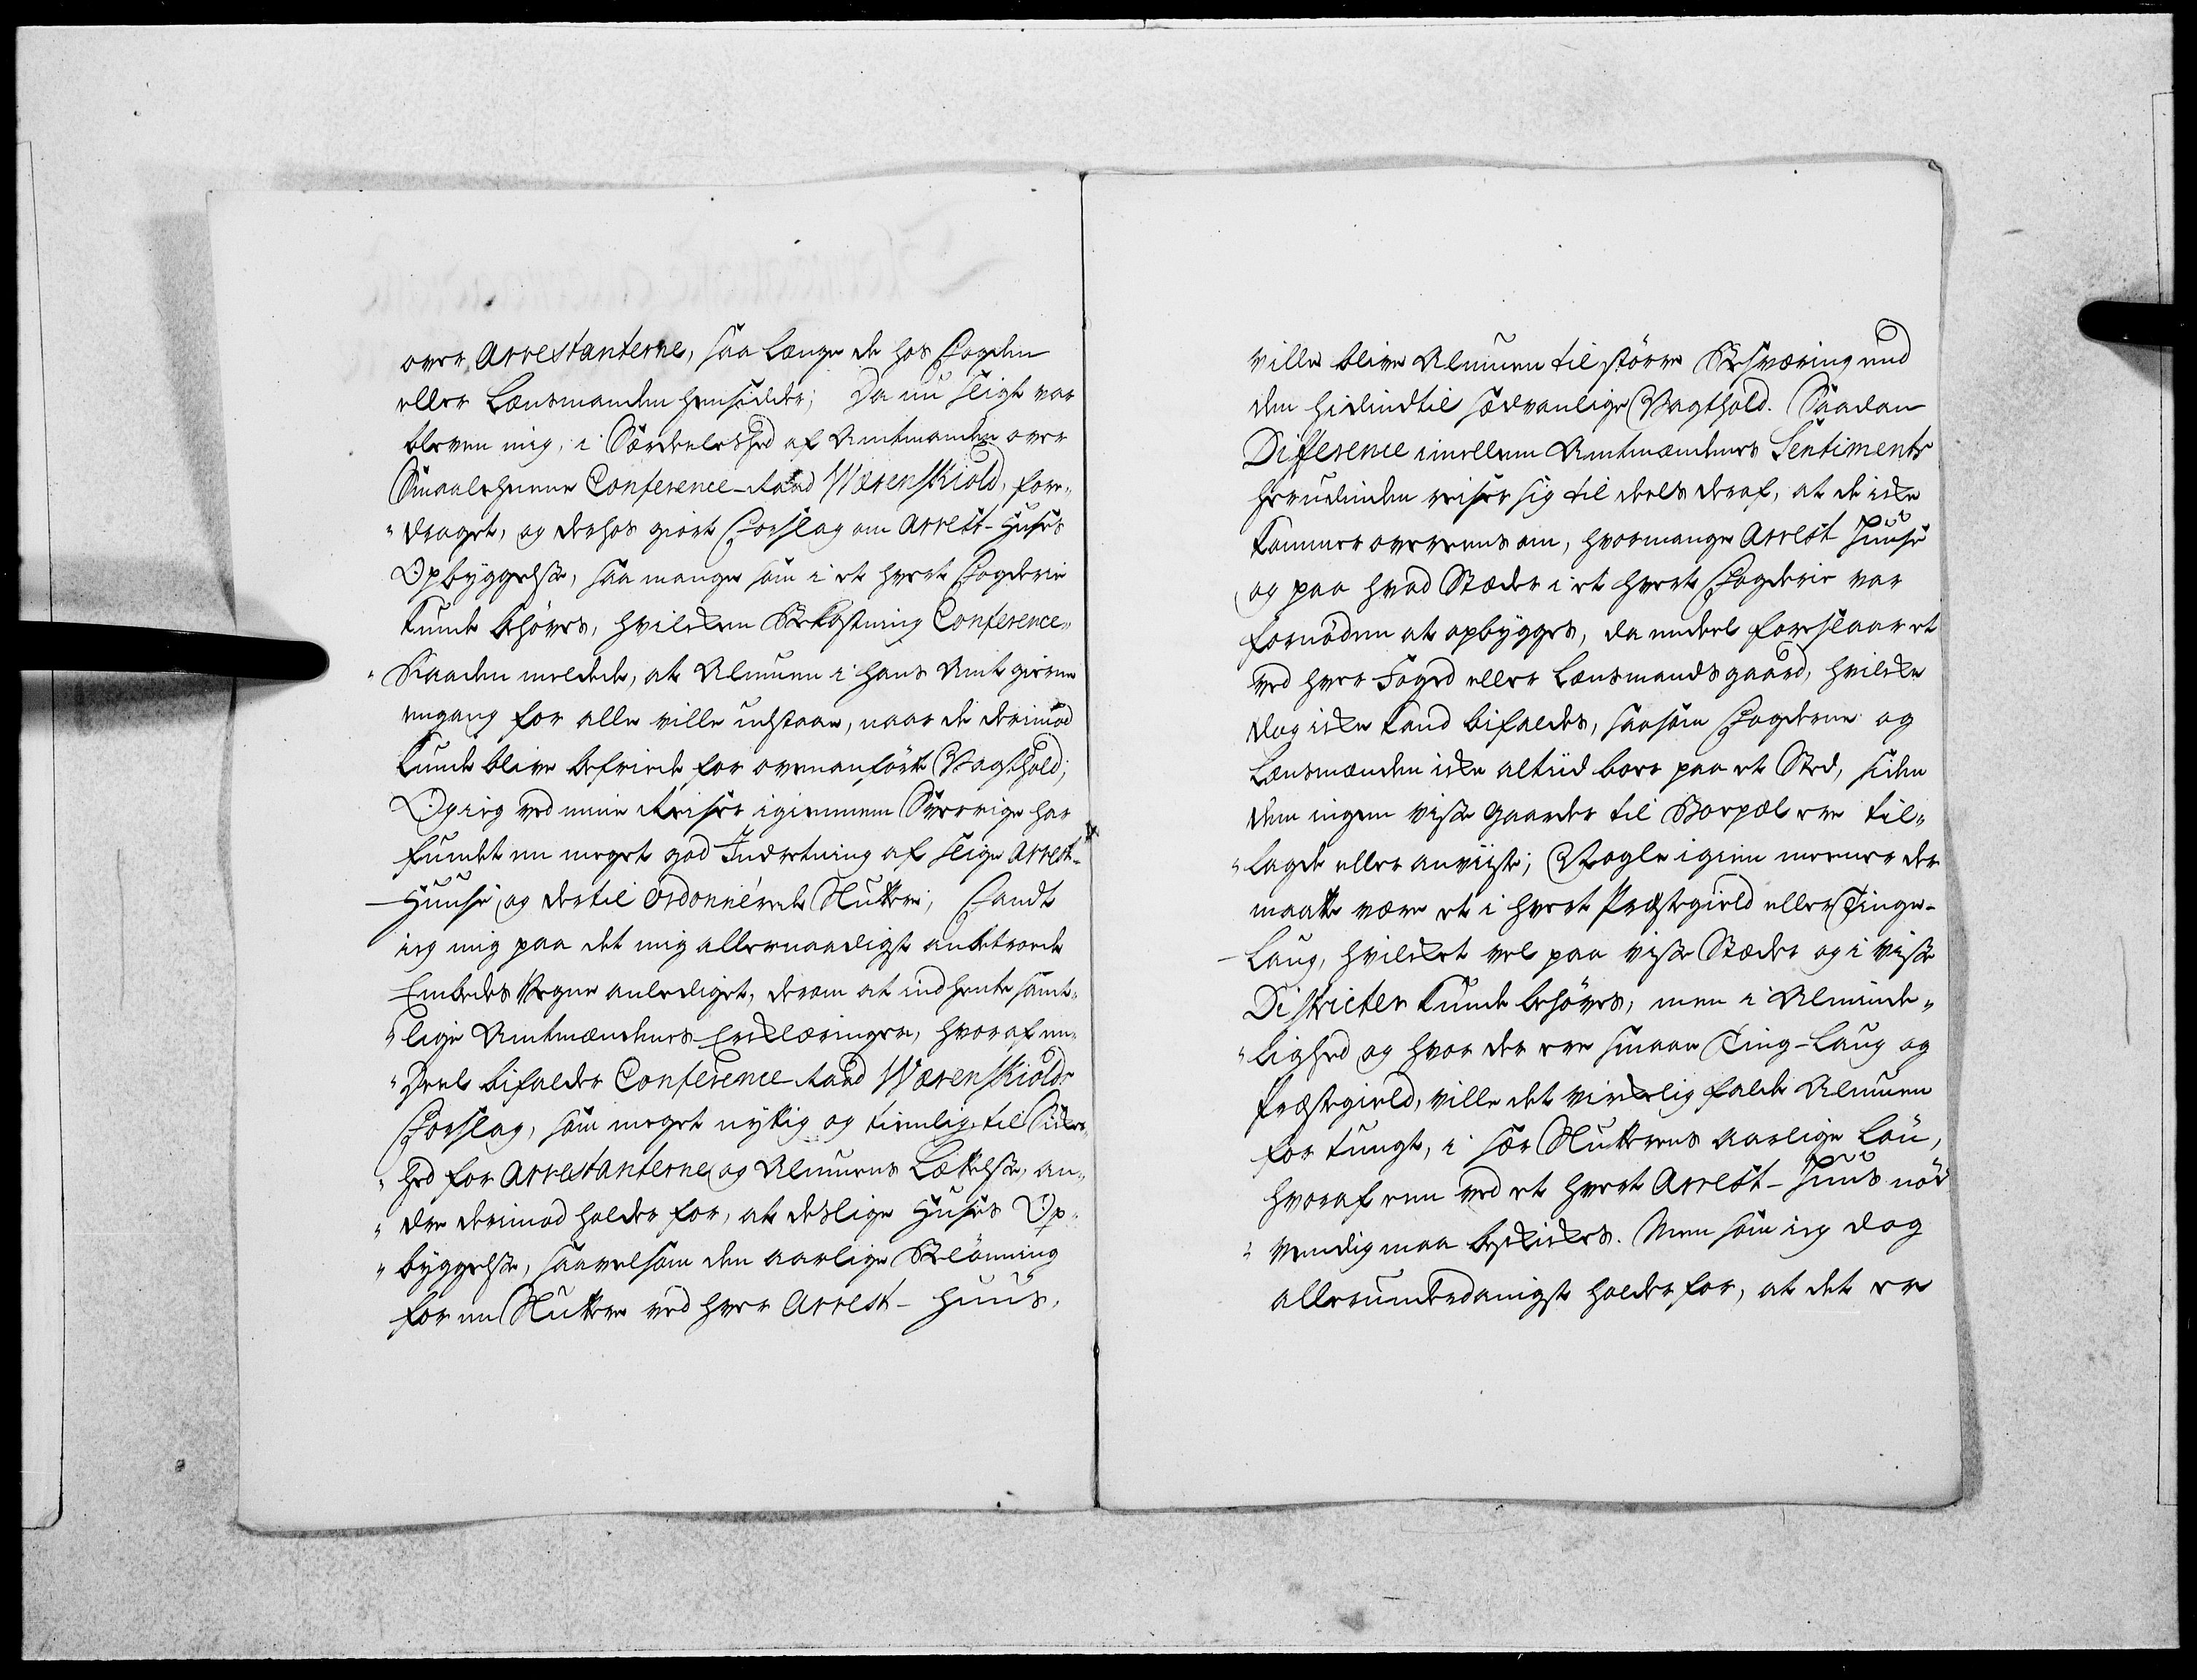 over Arrestanterne, saa længe de hos Fogden
eller Lænsmanden hensidder; Da nu sligt var
bleven mig, i Særdeleshed af Amtmanden over
Smaalehnene Conference-Raad Wærenskiold, fore„
„draget, og derhos giort Forslag om Arrest-Huses
Opbyggelse, saa mange som i et hvert Fogderie
kunde behøves, hvilcken Bekostning Conference„
„Raaden meldede, at Almuen i hans Amt gierne
engang for alle ville udstaae, naar de derimod
kunde blive befriede for ovenanførte Vagthold;
Og ieg ved mine Reiser igiennem Sverrige har
fundet en meget god Indretning af slige Arrest-
-Huuse, og dertil ordonnérede Sluttere, Fandt
ieg mig paa det mig allernaadigst anbetroede
Embedes Vegne anlediget, derom at indhente samt„
„lige Amtmændenes Erklæringer, hvoraf en„
„Deel bifalder Conference-Raad Wærenskiolds
Forslag, som meget nyttig og tienlig til Sicker„
„hed for Arrestanterne og Almuens Lættelse, an„
„dre derimod holder for, at deslige Huses Op„
„byggelse, saavelsom den aarlige Belønning
for en Sluttere ved hver Arrest-Huus,
ville blive Almuen til større Besværing end
den hidindtil sædvanlige Vagthold. Saadan
Difference imellem Amtmændenes Sentiments
herudinden reiser sig til deels deraf, at de icke
kommer overeens om, hvormange Arrest Huuse
og paa hvad Stæder i et hvert Fogderie var
fornøden at opbygges, da endeel foreslaar et
ved hver Foged eller Lænsmands gaard, hvilcke
dog icke kand bifaldes, saasom Fogderne og
Lænsmænden icke altiid boer paa et Sted, siden
dem ingen visse Gaarder til Boepæl ere til„
„lagde eller anviiste; Nogle igien meener der
maatte være et i hvert Præstegield eller Tinge-
-Laug, hvilcket vel paa visse Stæder og i visse
Districter kunde behøves, men i Alminde„
„lighed og hvor der ere smaae Ting-Laug og
Præstegield, ville det virckelig falde Almuen
for tungt, i sær Slutterens aarlige Løn,
hvoraf een ved et hvert Arrest-Huus nød
„vendig maa beskickes. Men som ieg dog
allerunderdanigst holder for, at det er